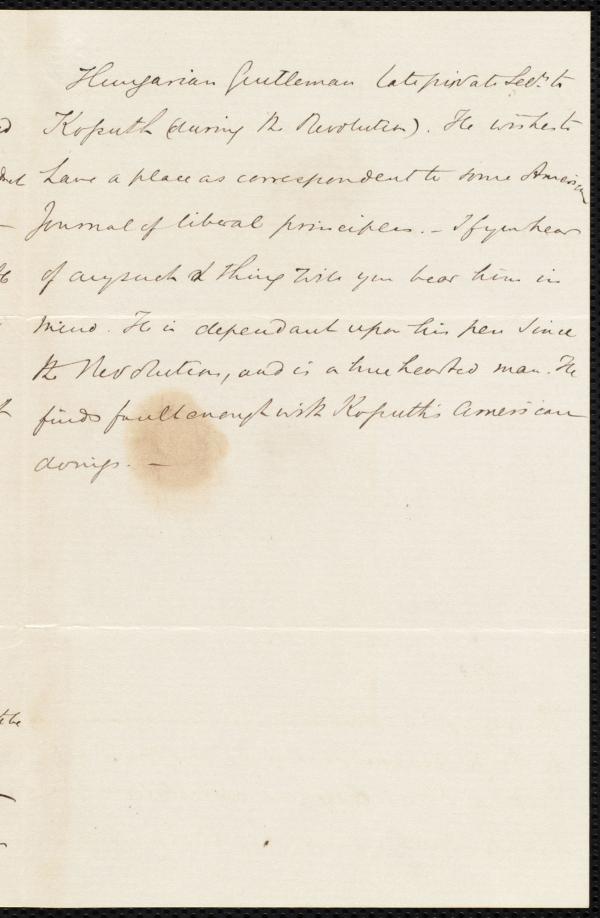 Hungarian Gentleman late private Secy. to
Kossuth (during the Revolution). He wishes to
have a place as correspondent to some American
Journal of liberal principles. - If you hear
of any such a thing will you bear him in
mind. He is dependant upon his pen since
the Revolution, and is a true hearted man. He
finds fault enough with Kossuth's American
doings. -
the